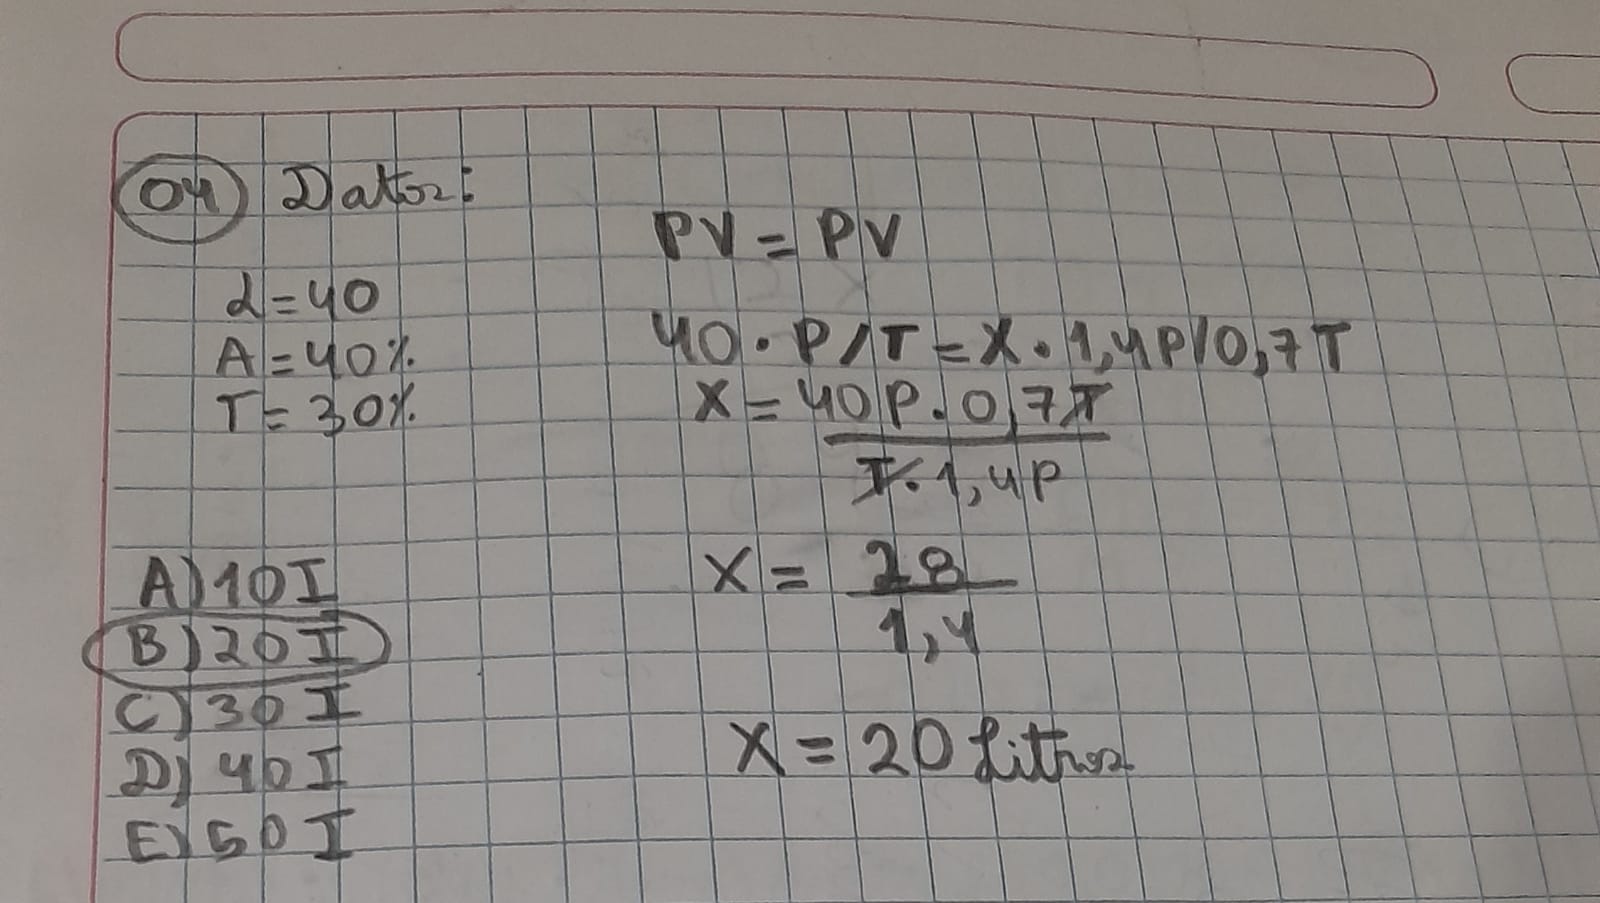 04 Datos:
L=40
A=40%
T=30%
A) 10 I
B) 20 I
C) 30 I
D) 40 I
E) 50 I
PV = PV
40 . P/T = X . 1,4P/0,7T
X = 40P . 0,7T
T . 1,4P
X = 28
1,4
X = 20 Litros